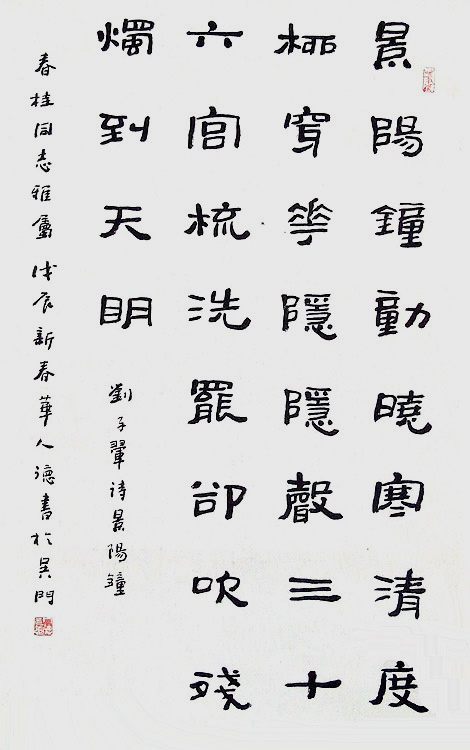 景陽鐘動曉寒清度
柳穿華隱隱聲三十
六宮梳洗罷卻吹殘
燭到天明
劉子翬诗景陽鐘
春桂同志雅 戊辰新春華人德書於吳門